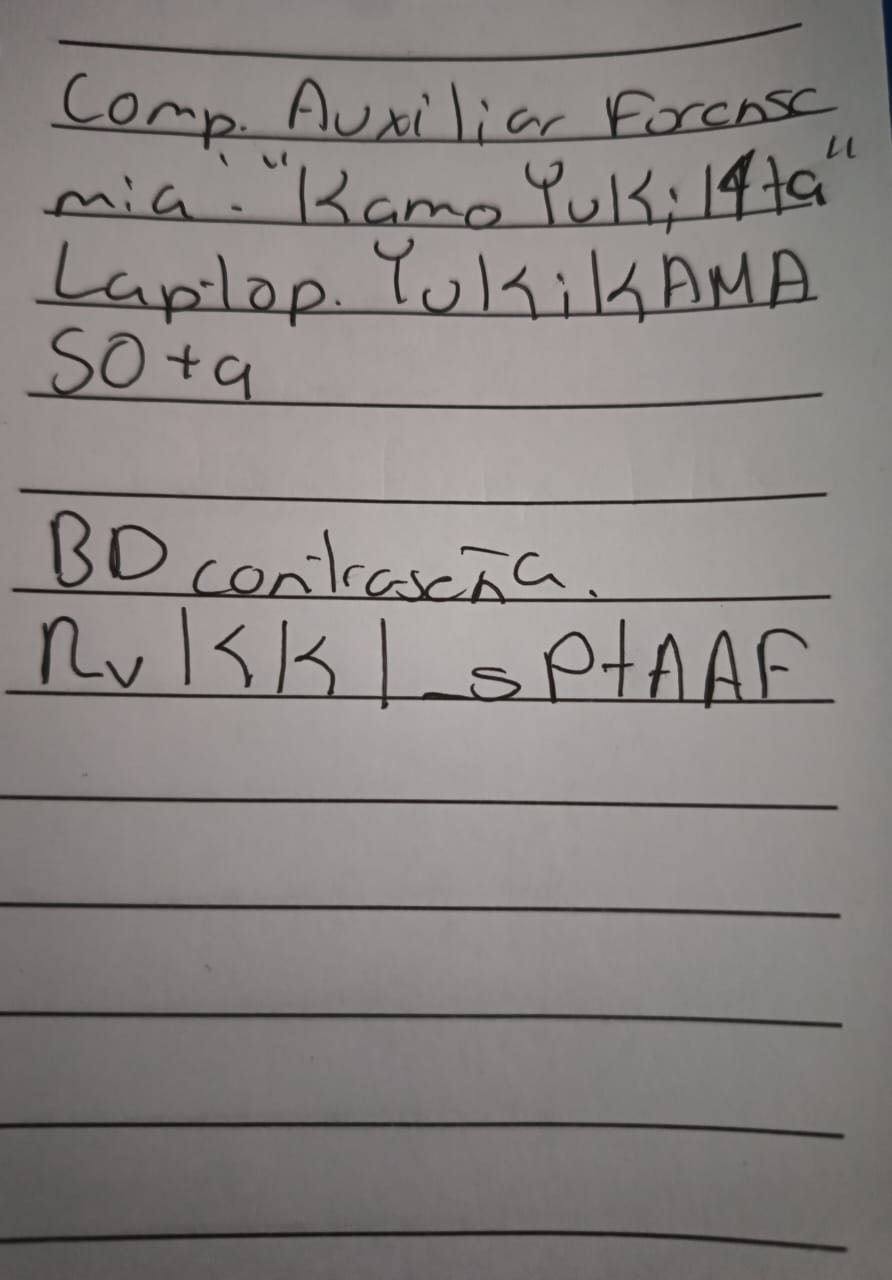 Comp. Auxiliar Forense
mia: "Kamo Yuki 14ta"
Laptop. YukiKAMA
SO+a
BD contraseña.
RvKK1_sPtAAF